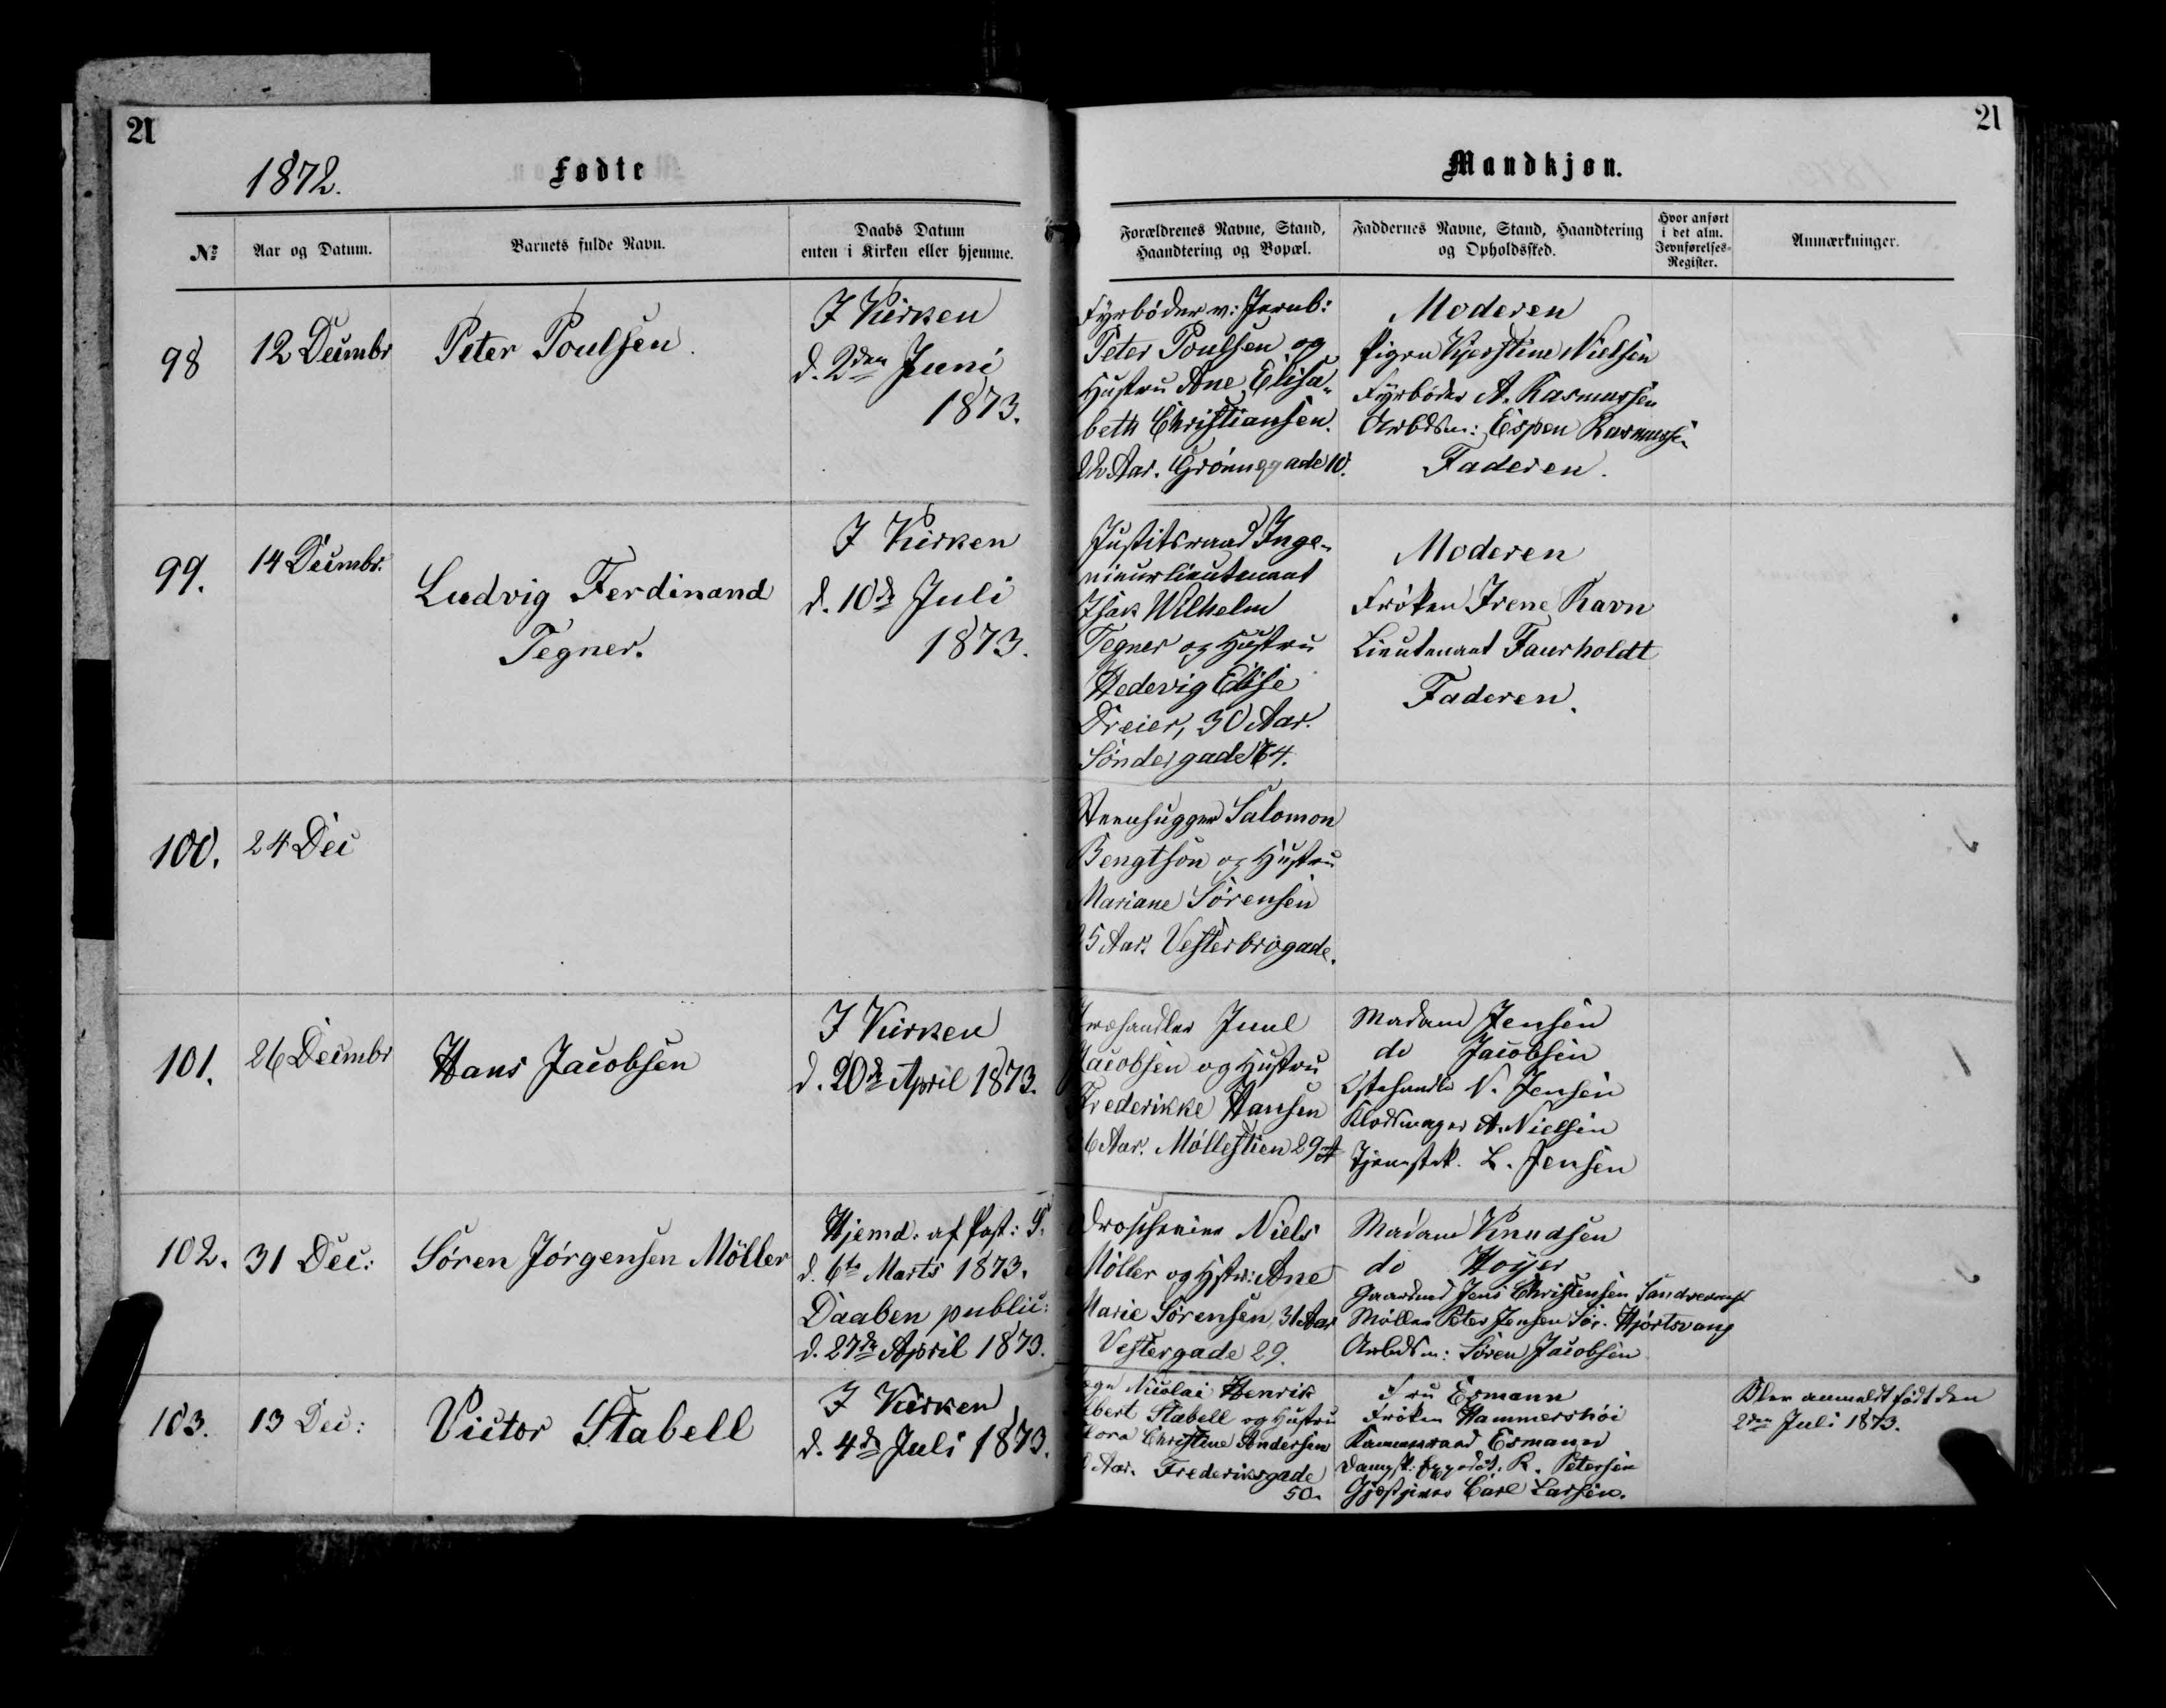 21
1872.
Fødte
№
Aar og Datum.
Barnets fulde Navn.
Daabs Datum
enten i Kirken eller hjemme.
98
12 Decmbr
Peter Poulsen.
I Kirken
d. 2den Juni
1873.
99.
14 Decmbr.
Ludvig Ferdinand
Tegner.
I Kirken
d. 10de Juli
1873.
100.
24 Dec
101.
26 Decmbr
Hans Jacobsen
I Kirken
d. 20de April 1873.
102.
31 Dec:
Sören Jörgensen Möller
Hjemd. af Past: S.
d. 6te Marts 1873.
Daaben public:
d. 27de April 1873.
103.
13 Dec:
Victor Stabell
I Kirken
d. 4de Juli 1873.
21
Mandkjøn.
Forældrenes Navne, Stand,
Haandtering og Bopæl.
Faddernes Navne, Stand, Haandtering
og Opholdssted.
Hvor anført
i det alm.
Jevnførelses-
Register.
Anmærkninger.
Fyrböder v: Jernb:
Peter Poulsen og
Hustru Ane Elisa-
beth Christiansen.
22 Aar. Grönnegade 10.
Moderen
Pigen Kjerstine Nielsen
Fyrböder A. Rasmussen
Arbdsm: Espen Rasmussen
Faderen.
Justitsraad Inge-
nieurlieutenant
Isak Wilhelm
Tegner og Hustru
Hedevig Elise
Dreier, 30 Aar.
Söndergade 64.
Moderen
Fröken Irene Ravn
Lieutenant Faurholdt
Faderen.
Steenhugger Salomon
Bengtson og Hustru
Mariane Sörensen
25 Aar. Vesterbrogade.
Juul
Jacobsen og Hustru
Frederikke Hansen
6 Aar. Möllestien 29 A
Madam Jensen
do Jacobsen
N. Jensen
A. Nielsen
Tjenestek. L. Jensen
Niels
Möller og Hstr: Ane
Marie Sörensen, 31 Aar
Vestergade 29.
Madam Knudsen
do Höyer
Gaardmd Jens Christensen
Möller Peter Jensen Hjortsvang
Arbdsm: Sören Jacobsen
Nicolai Henrik
Albert Stabell og Hustru
Christine Andersen
Aar. Frederiksgade
50.
Fru Esmann
Fröken Hammershöi
Kammerraad Esmann
R. Petersen
Gjæstgiver Carl Larsen.
Blev anmeldt födt den
2den Juli 1873.